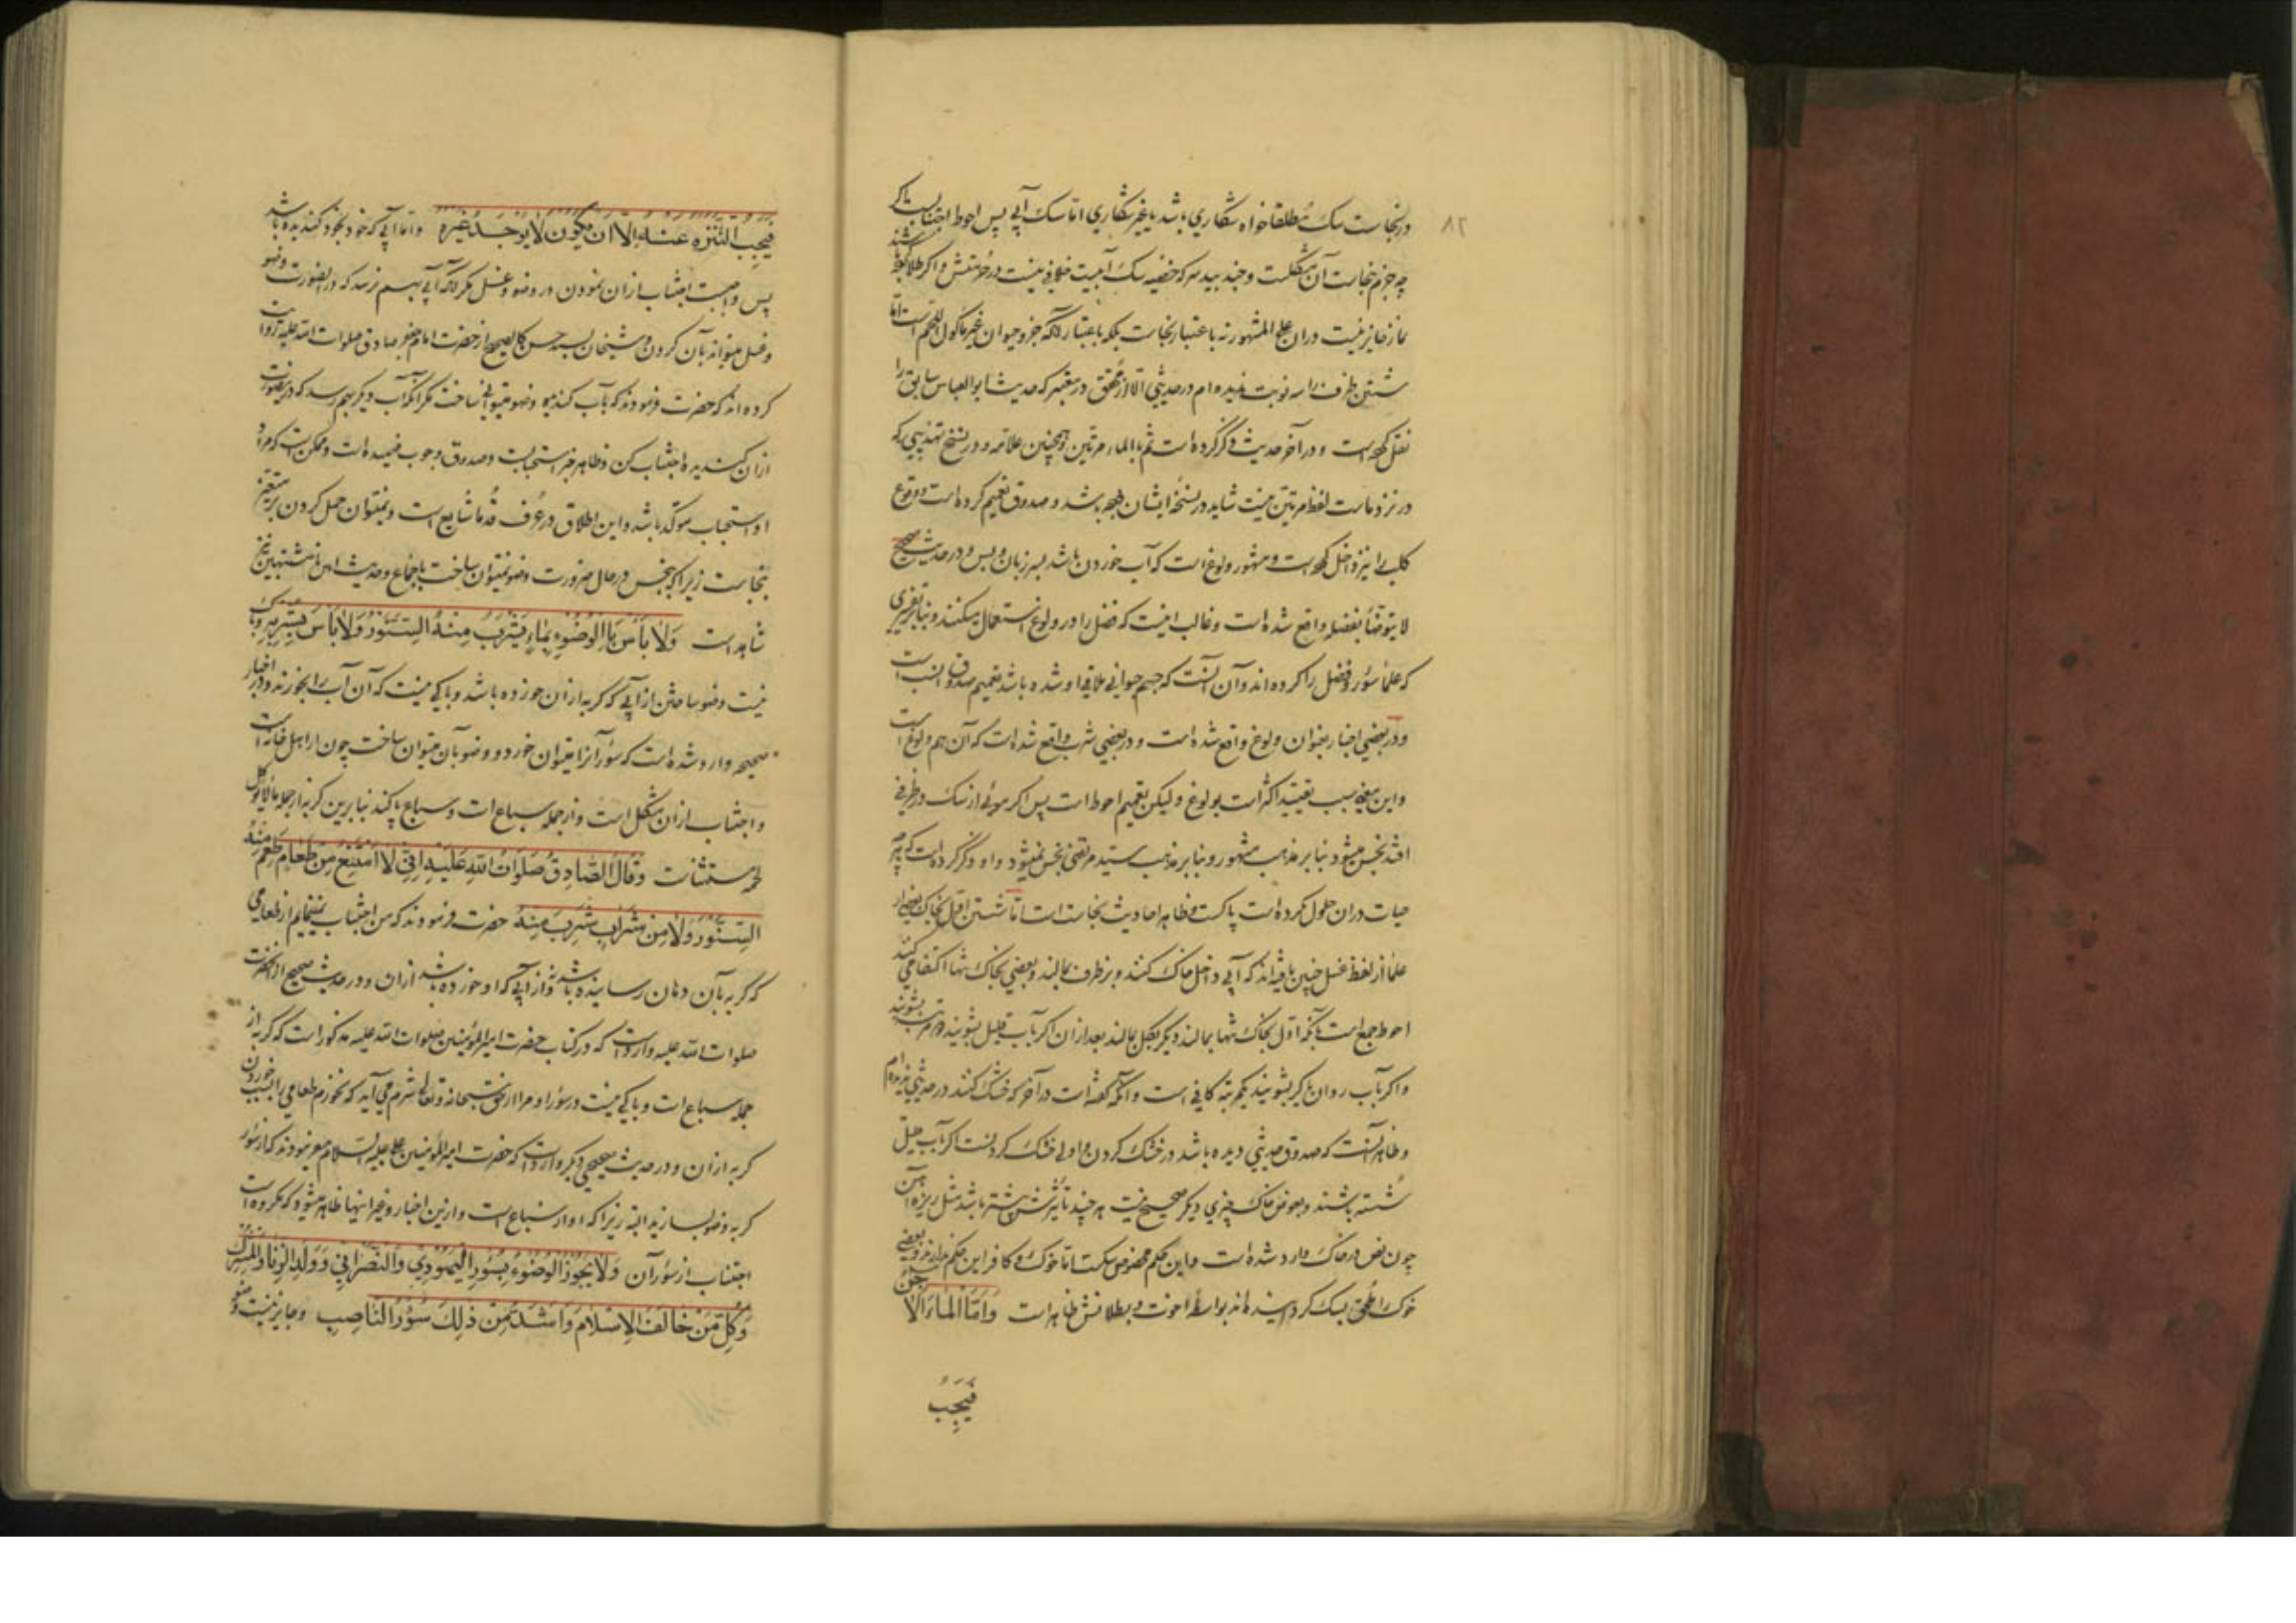 ۸۲
در نجاست سک مطلقا خواه شکاري باشد يا غير شکاري اما سک آبي پس احوط اجتنابست اکر
چه جزم نجاست آن مشکلست
نماز جايز نيست دران علي المشهور نه باعتبار نجاست بلکه باعتبار آنکه جزو حيوان غير ماکول اللحم است اما
شستن ظرف را سه نوبت نديده ام در حديثي الا از محقق در معتبر که حديث ابو العباس سابق را
نقل کرده است و در آخر حديث ذکر کرده است ثم بالماء مرتين و همچنين علامه و در نسخ تهذيبي که
در نزد ماست لفظ مرتين نيست شايد در نسخه ايشان بوده باشد و صدوق تعميم کرده است و وقوع
کلب را نيز داخل کرده است و مشهور ولوغ است که آب خوردن باشد بسر زبان و بس و در حديث صحيح
لا يتوضأ بفضله واقع شده است و غالب اينست که فضل را در ولوغ استعمال ميکنند و بنابر تفسيري
که علما سؤر و فضل را کرده اند و آن آنست که جسم حيواني ملاقي او شده باشد تعميم صدوق انسب است
و در بعضي اخبار بعنوان ولوغ واقع شده است و در بعضي شرب واقع شده است که آن هم ولوغ است
و اين معني سبب تقييد اکثر است بولوغ و ليکن تعميم احوط است پس اکر موئي از سک در ظرفي
افتد نجس ميشود بنا بر مذهب مشهور و بنا بر مذهب سيد مرتضي نجس نميشود و او ذکر کرده است که هر چه
حيات دران حلول نکرده است پاکست و ظاهر احاديث نجاست است اما شستن اول بخاک بعضي از
علما از لفظ غسل چنين يافته اند که آبي داخل خاک کنند و بر ظرف بمالند و بعضي بخاک تنها اکتفا مي کنند
احوط جمع است بآنکه اول بخاک تنها بمالند ديکر بکل بمالند بعد ازان اکر بآب قليل بشويند دو مرتبه بشويند
و اکر بآب روان يا کر بشويند يکمرتبه کافي است و آنکه کفته است در آخر که خشک کنند در حديثي نديده ام
و ظاهر آنست که صدوق حديثي ديده باشد در خشک کردن و اولي خشک کردنست اکر بآب قليل
شسته باشند و بعوض خاک چيزي ديکر صحيح نيست هر چند تأثيرش بيشتر باشد مثل ريزه آهن
چون نص در خاک وارد شده است و اين حکم مخصوص سکست اما خوک و کافر اين حکم ندارند و بعضي
خوک را ملحق بسک کردانيده اند بواسطه اخوت و بطلانش ظاهر است وَاَمَّا الْمَاءُ الْآجِنُ
فَيَجِبُ
فَيَجِبُ التَّنَزُّهُ عَنْهُ اِلَّا اَنْ يَكُونَ لَا يُوجَدُ غَيْرُهُ و اما آبي که خود بخود کنديده باشد
پس واجبست اجتناب ازان نمودن در وضو و غسل مکر آنکه آبي بهم نرسد که در اينصورت وضو
و غسل ميتواند بآن کردن و شيخان بسند حسن کالصحيح از حضرت امام جعفر صادق صلوات الله عليه روايت
کرده اند که حضرت فرمودند که بآب کنديده وضو ميتواني ساخت مکر آنکه آب ديکر بهم رسد که در ينصورت
ازان کنديده اجتناب کن و ظاهر خبر استحبابست و صدوق وجوب فهميده است و ممکن است که مراد
او استحباب موکد باشد و اين اطلاق در عرف قدما شايع است و نميتوان حمل کردن بر متغير
بنجاست زيرا که بنجس در حال ضرورت وضو نميتوان ساخت باجماع و حديث انائين مشتبهين نيز
شاهد است وَلَا بَأْسَ بِالْوُضُوءِ بِمَاءٍ يَشْرَبُ مِنْهُ السِّنَّوْرُ وَلَا بَأْسَ بِشُرْبِهِ و باکي
نيست وضو ساختن از آبي که کربه ازان خورده باشد و باکي نيست که آن آب را بخورند و در اخبار
صحيحه وارد شده است که سؤر آنرا ميتوان خورد و وضو بآن ميتوان ساخت چون از اهل خانه است
و اجتناب ازان مشکل است و از جمله سباع است و سباع پاکند بنا برين کربه از جمله ما لا يؤکل
لحمه مستثناست وَقَالَ الصَّادِقُ صَلَوَاتُ اللهِ عَلَيْهِ اِنِّي لَا اَمْتَنِعُ مِنْ طَعَامٍ طَعِمَ مِنْهُ
السِّنَّوْرُ وَلَا مِنْ شَرَابٍ شَرِبَ مِنْهُ حضرت فرمودند که من اجتناب نمينمايم از طعامي
که کربه بآن دهان رسانيده باشد و نه از آبي که او خورده باشد ازان و در حديث صحيح از آنحضرت
صلوات الله عليه وارد است که در کتاب حضرت امير المؤمنين صلوات الله عليه مذکور است که کربه از
جمله سباع است و باکي نيست در سؤر او و مرا از حق سبحانه و تعالي شرم مي آيد که نخورم طعامي را بسبب خوردن
کربه ازان و در حديث صحيحي ديکر وارد است که حضرت امير المؤمنين علي عليه السلام ميفرمودند که از سؤر
کربه وضو بسازيد البته زيرا که او از سباع است و ازين اخبار و غير اينها ظاهر ميشود که مکروه است
اجتناب از سؤر آن وَلَا يَجُوزُ الْوُضُوءُ بِسُؤْرِ الْيَهُودِيِّ وَالنَّصْرَانِيِّ وَوَلَدِ الزِّنَا وَالْمُشْرِكِ
وَكُلِّ مَنْ خَالَفَ الْاِسْلَامَ وَاَشَدُّ مِنْ ذٰلِكَ سُؤْرُ النَّاصِبِ و جايز نيست وضو